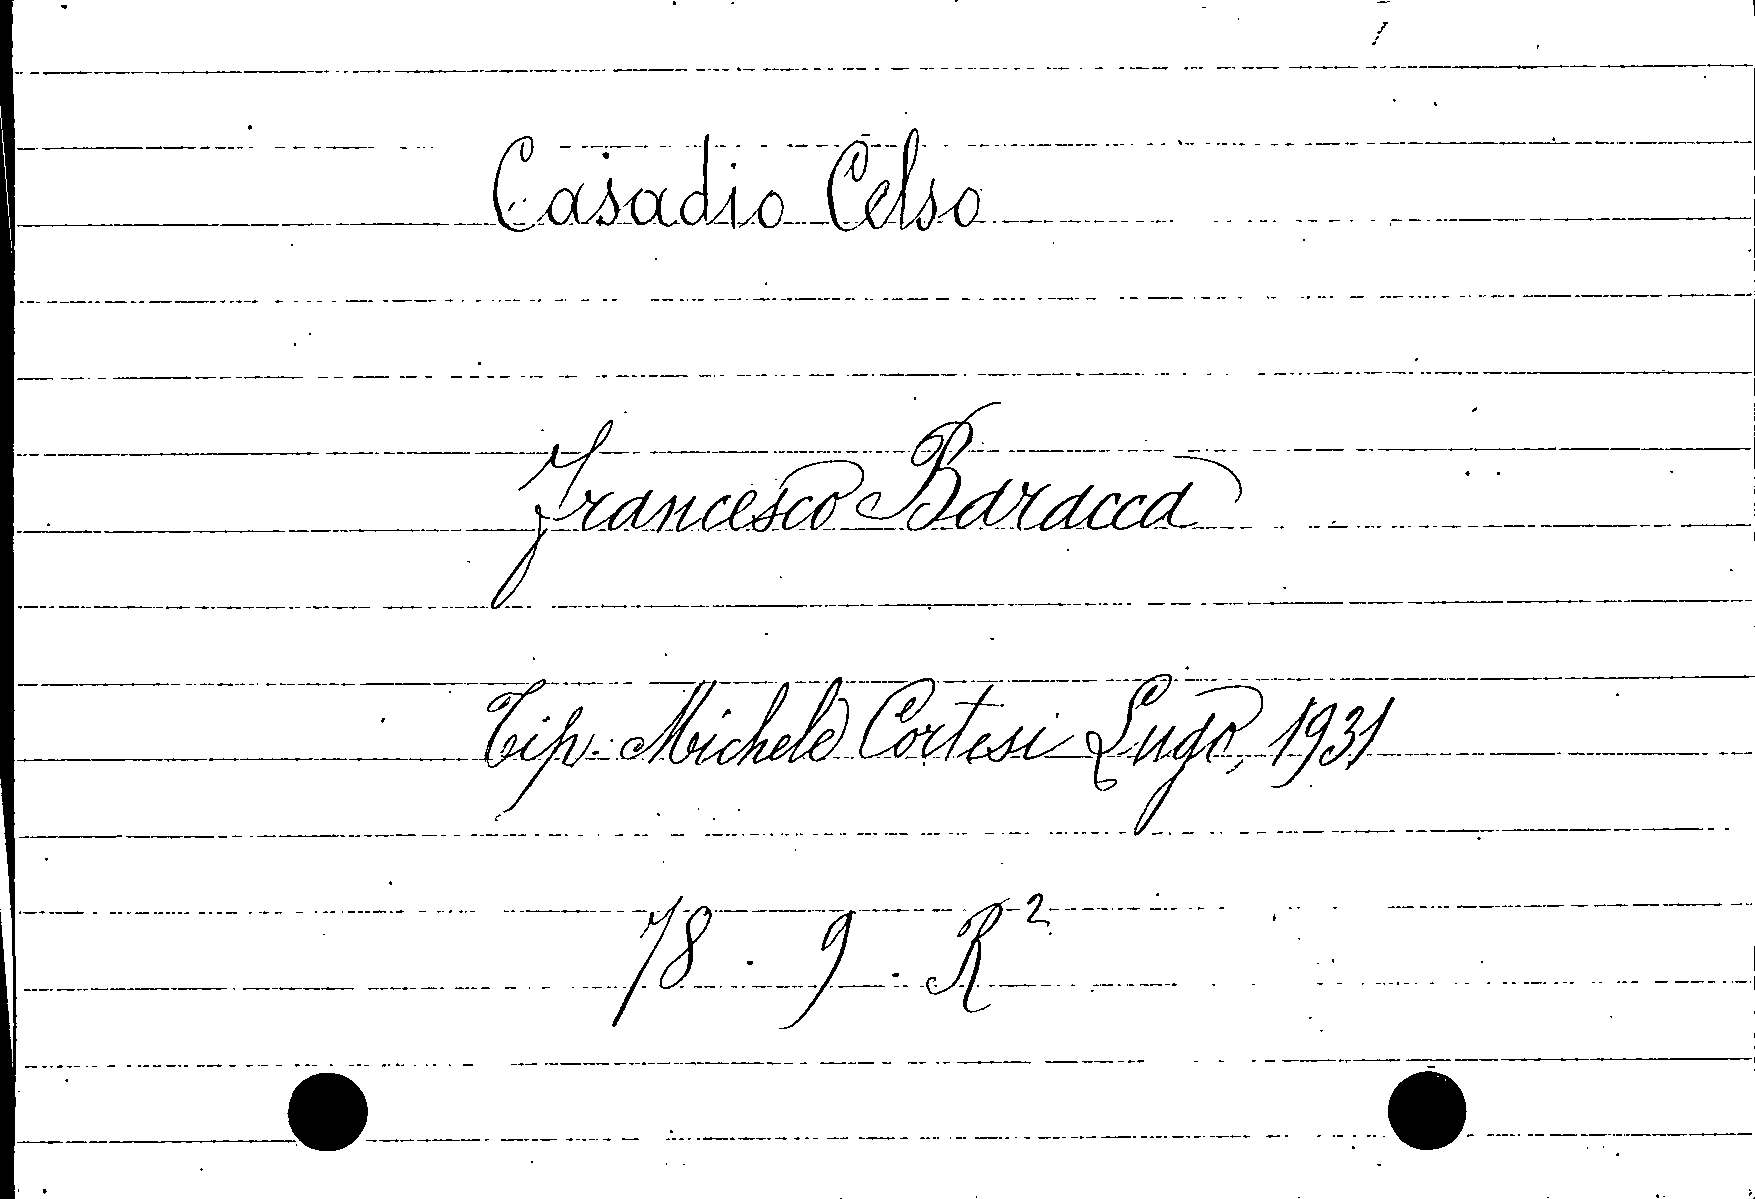 Casadio Celso
Francesco Baracca
Tip. Michele Cortesi Lugo, 1931
78 . 9 . R²